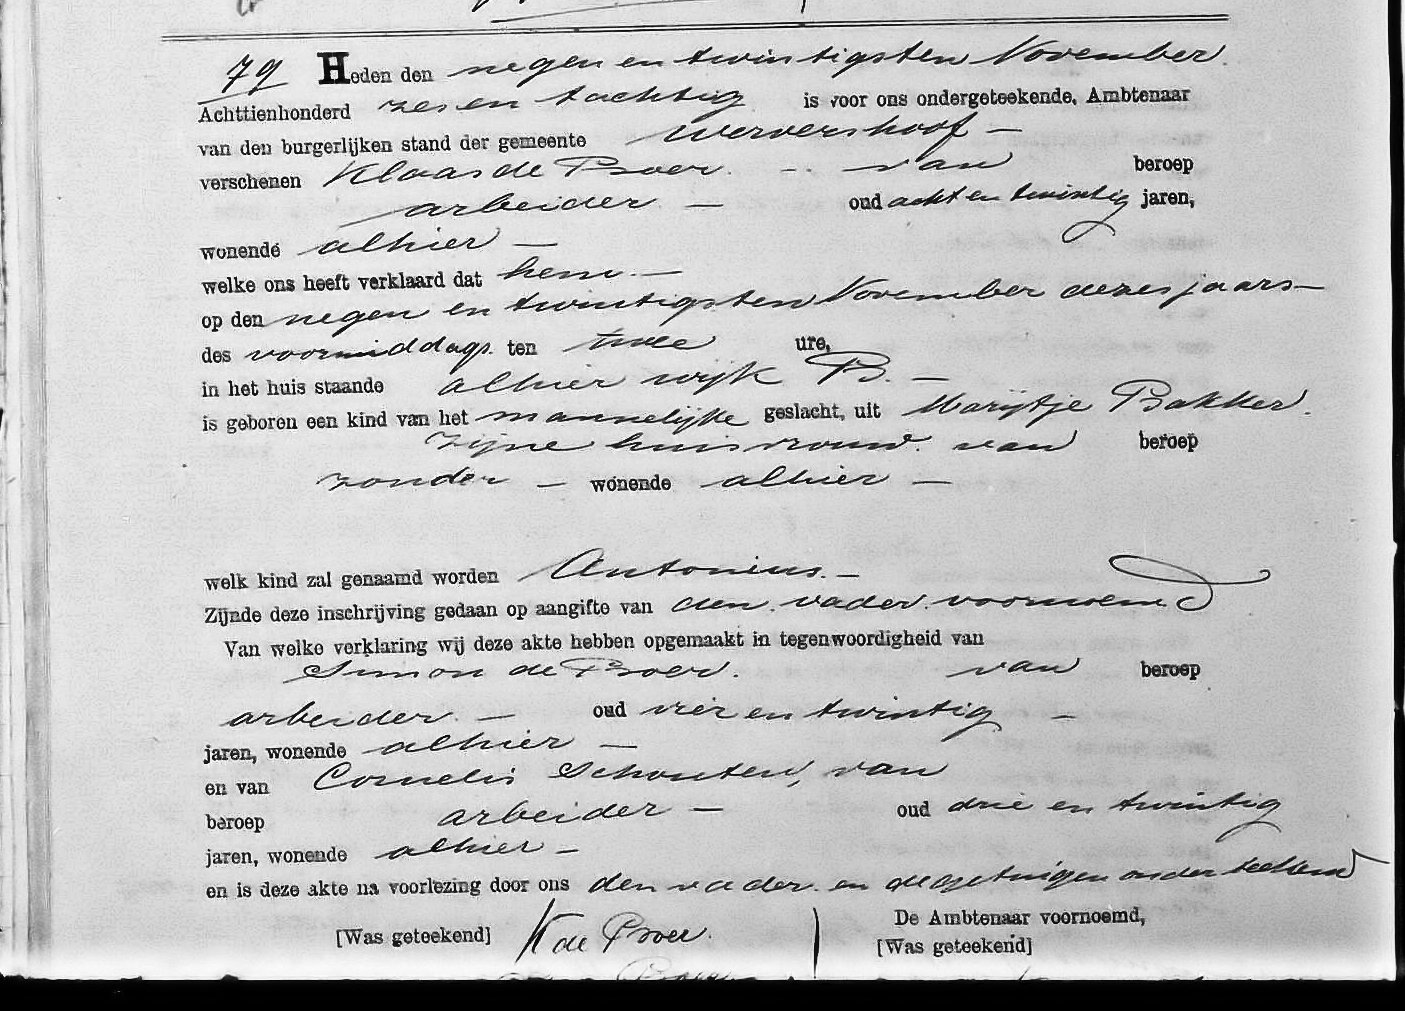 79 Heden den negen en twintigsten November
Achttienhonderd zes en tachtig is voor ons ondergeteekende, Ambtenaar
van den burgerlijken stand der gemeente Wervershoof –
verschenen Klaas de Boer. – van beroep
arbeider – oud acht en twintig jaren,
wonende alhier –
welke ons heeft verklaard dat hem –
op den negen en twintigsten November dezes jaars –
des voormiddags ten twee ure,
in het huis staande alhier wijk B. –
is geboren een kind van het mannelijke geslacht, uit Marijtje Bakker.
zijne huisvrouw. van beroep
zonder – wonende alhier –
welk kind zal genaamd worden Antonius. –
Zijnde deze inschrijving gedaan op aangifte van den vader voornoemd
Van welke verklaring wij deze akte hebben opgemaakt in tegenwoordigheid van
Simon de Boer. van beroep
arbeider. – oud vier en twintig –
jaren, wonende alhier –
en van Cornelis Schouten, van
beroep arbeider – oud drie en twintig
jaren, wonende alhier –
en is deze akte na voorlezing door ons den vader en de getuigen onderteekend
De Ambtenaar voornoemd,
[Was geteekend] K de Boer. [Was geteekend]